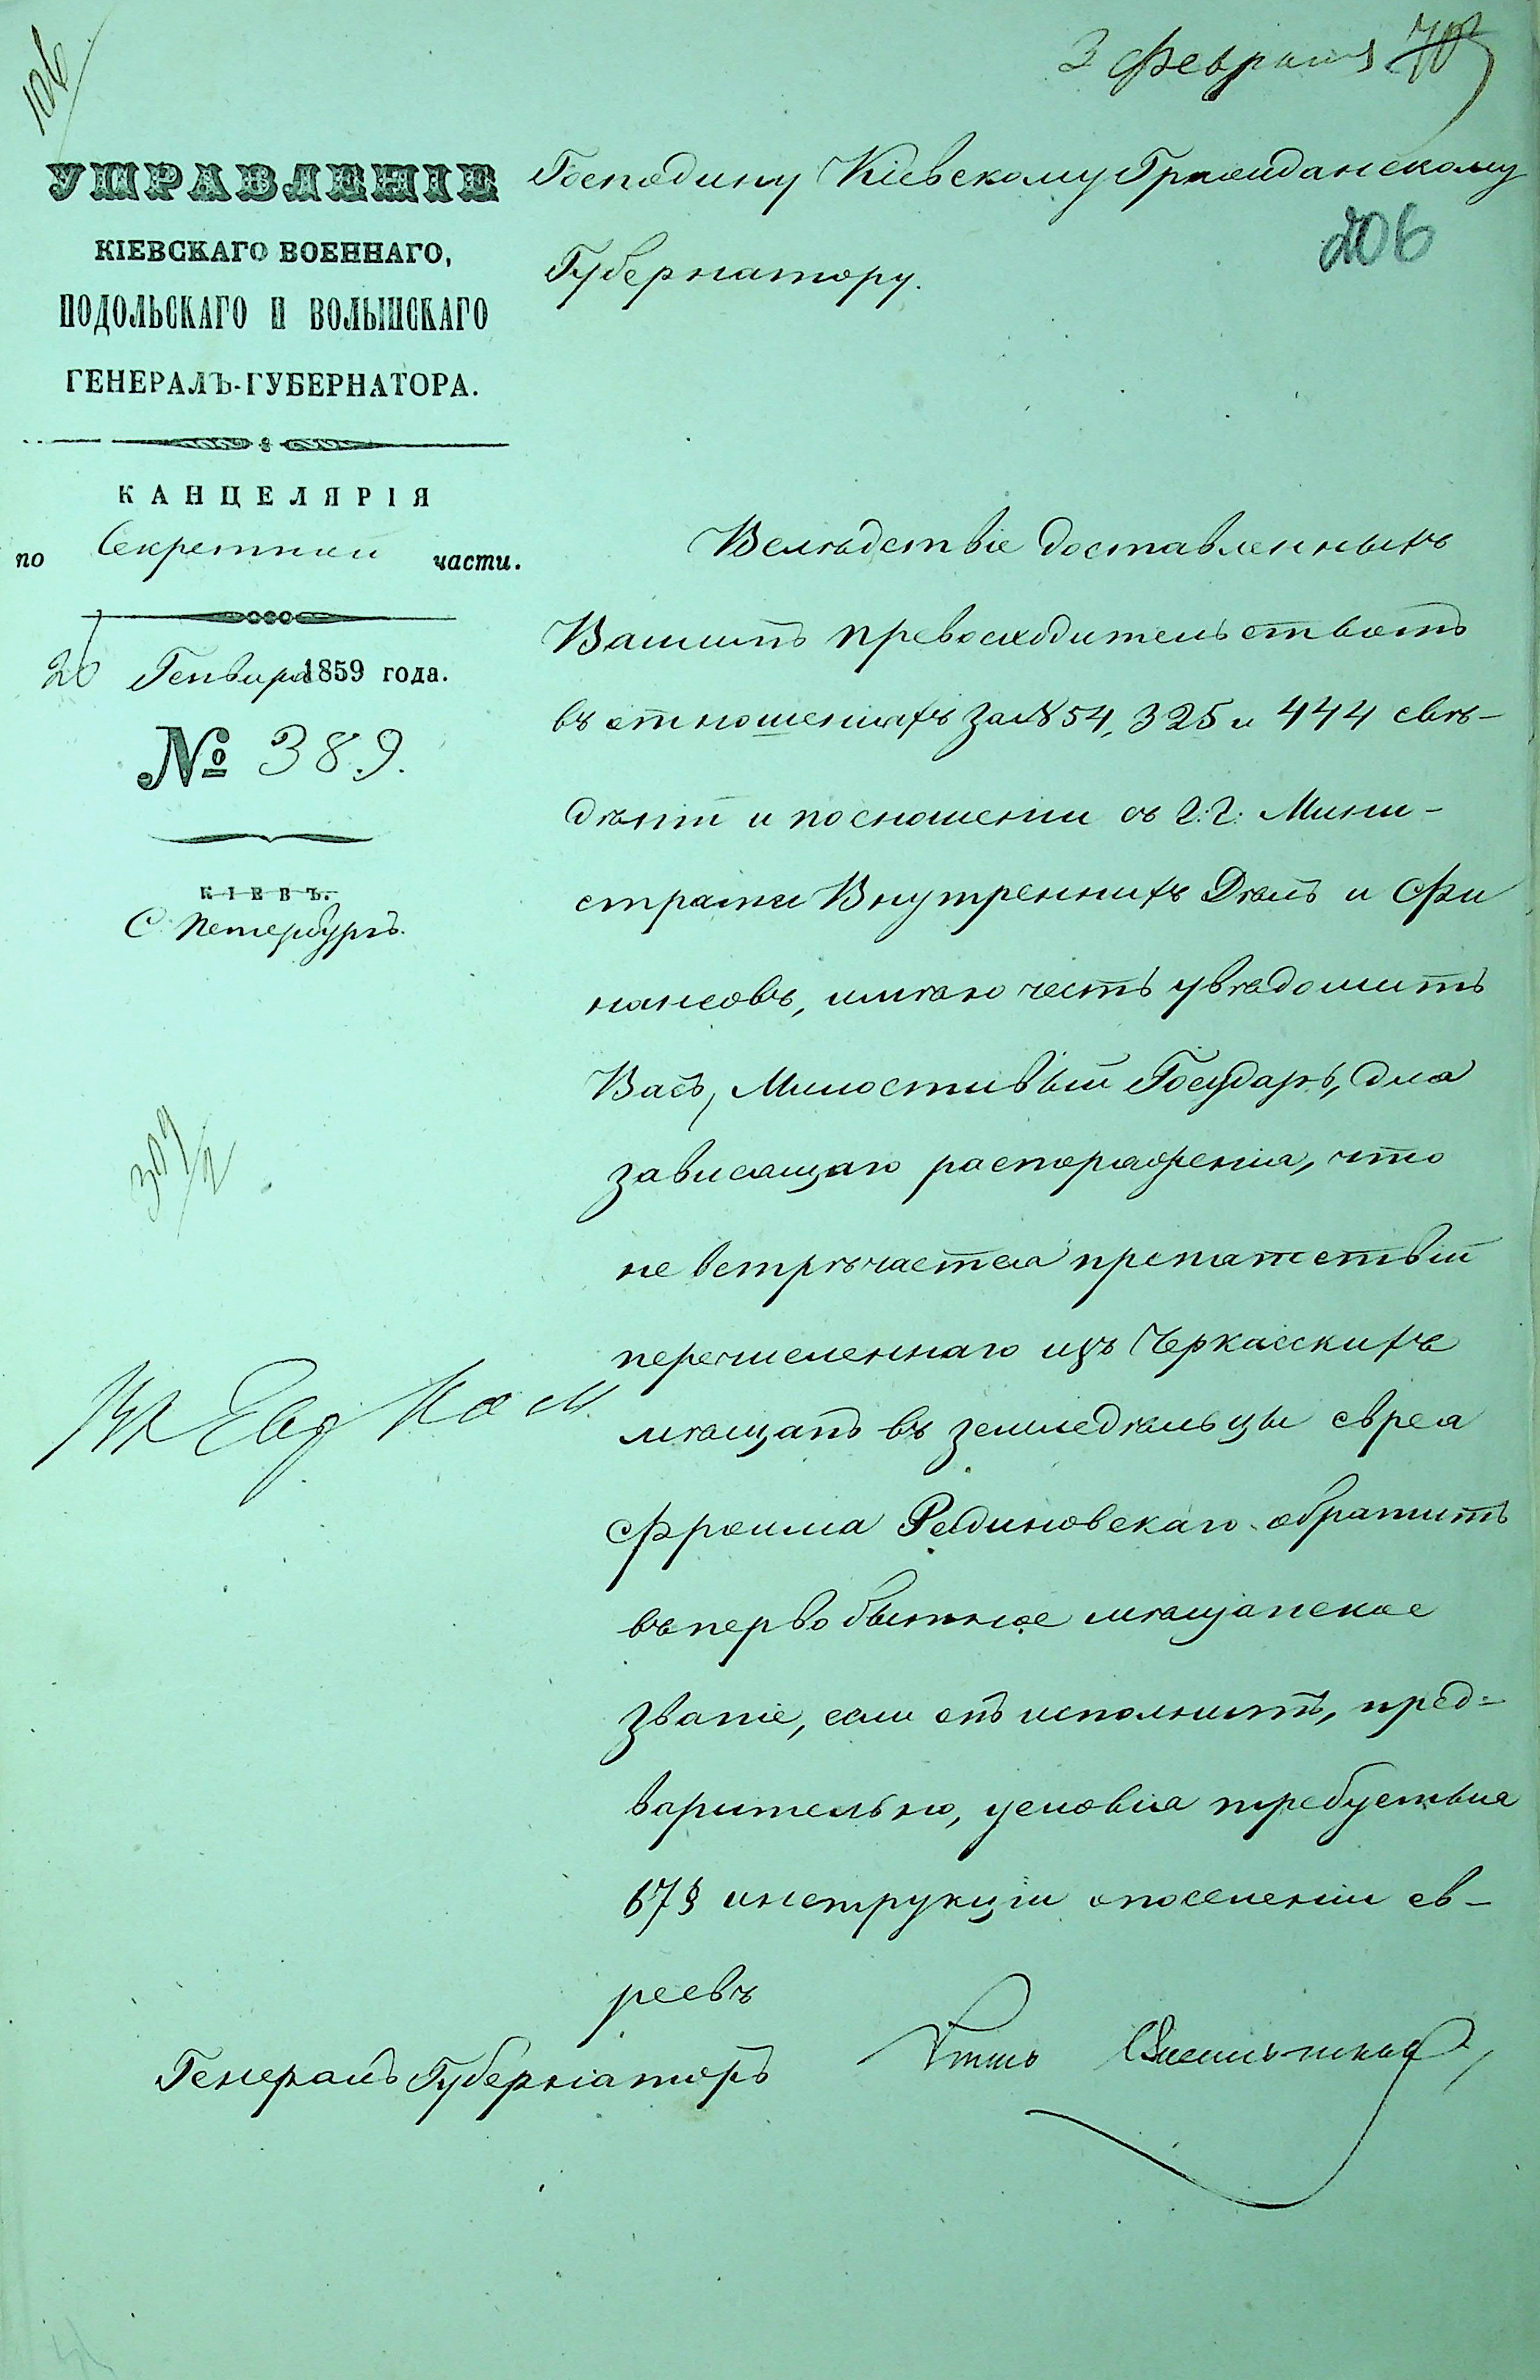 106
3 Февраля
УПРАВЛЕНІЕ
КІЕВСКАГО ВОЕННАГО,
ПОДОЛЬСКАГО И ВОЛЫНСКАГО
ГЕНЕРАЛЪ-ГУБЕРНАТОРА.
КАНЦЕЛЯРІЯ
по Секретной части.
26 Генваря 1859 года.
№ 389.
КІЕВЪ.
С. Петербургъ.
309/2
Господину Кіевскому Гражданскому
206
Губернатору.
Вслѣдствіе доставленныхъ
Вашимъ превосходительствомъ
въ отношеніяхъ за № 54, 325 и 444 свѣ-
дѣній и по сношеніи съ г.г. Мини-
страми Внутреннихъ Дѣлъ и Фи
нансовъ, имѣю честь увѣдомить
Васъ, Милостивый Государь, для
зависящаго распоряженія, что
не встрѣчается препятствій
перечисленнаго изъ Черкасскихъ
мѣщанъ въ земледѣльцы еврея
Фроима Рединовскаго обратить
въ первобытное мѣщанское
званіе, если онъ исполнитъ, пред-
варительно, условія требуемыя
67 § инструкціи о поселеніи ев-
реевъ
Генералъ Губернаторъ Князь Васильчиковъ